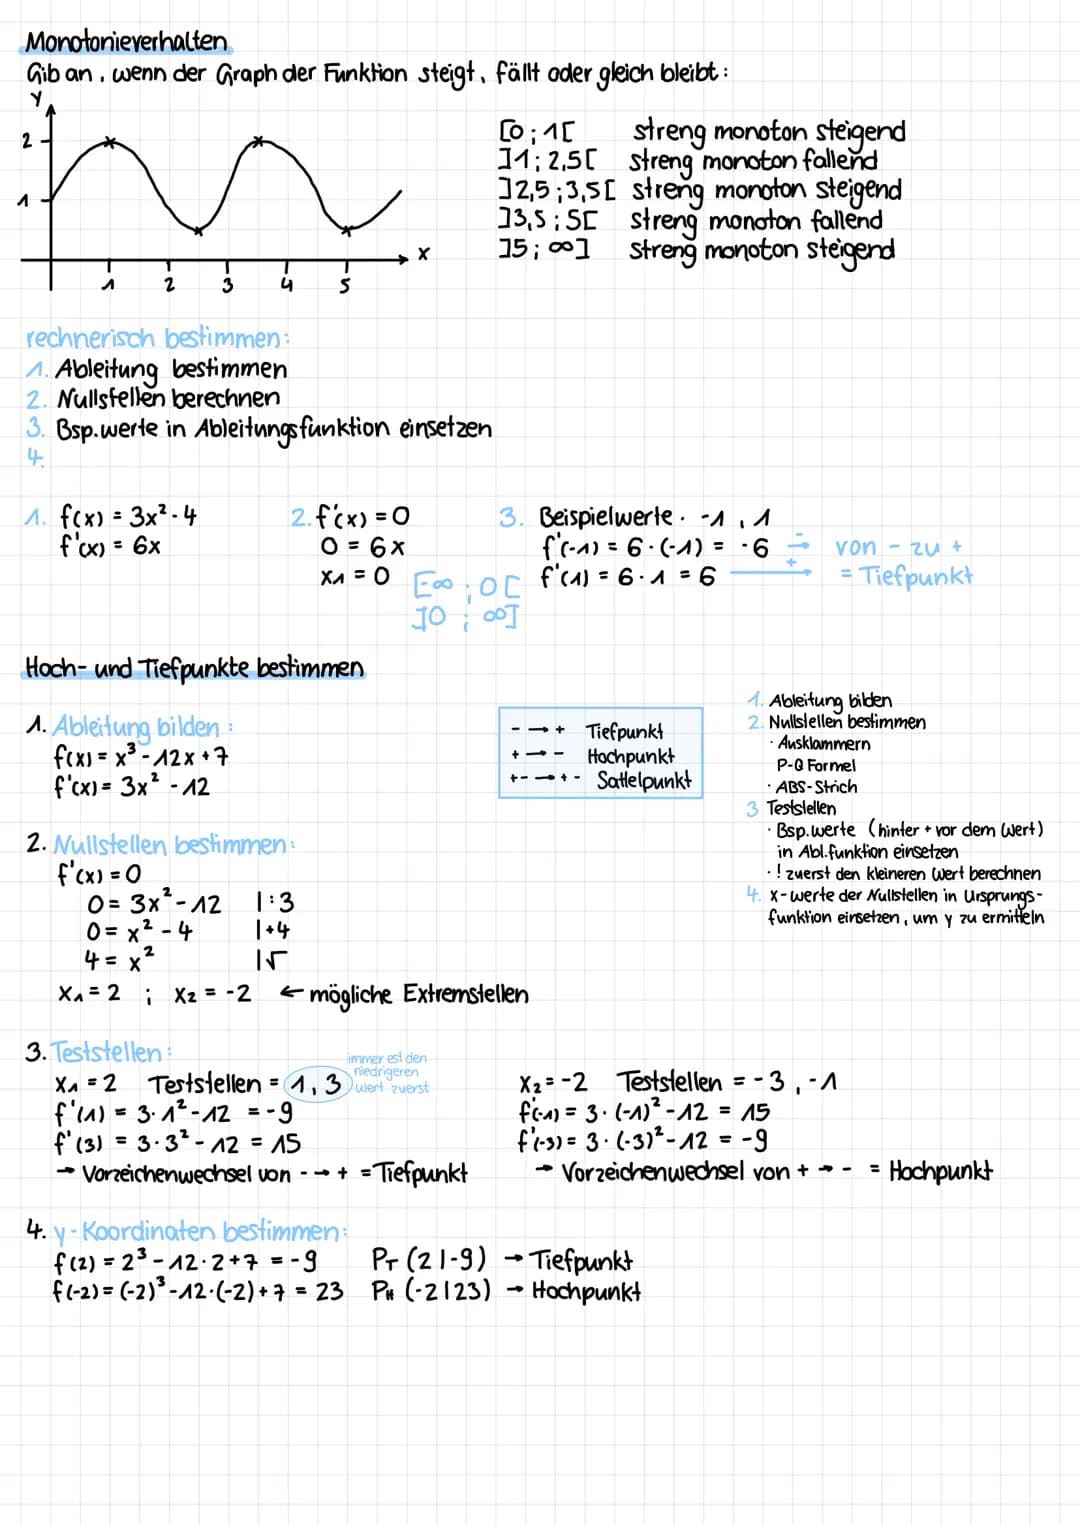 Monotonieverhalten
Gib an, wenn der Graph der Funktion steigt, fällt oder gleich bleibt:
y
2
1
x
1 2 3 4 5
[0;1[ streng monoton steigend
]1;2,5[ streng monoton fallend
]2,5;3,5[ streng monoton steigend
]3,5;5[ streng monoton fallend
]5;∞] streng monoton steigend
rechnerisch bestimmen:
1. Ableitung bestimmen
2. Nullstellen berechnen
3. Bsp.werte in Ableitungsfunktion einsetzen
4.
1. f(x) = 3x²-4
f'(x) = 6x
2. f'(x) = 0
0 = 6x
x₁ = 0
[-∞;0[
]0;∞]
3. Beispielwerte: -1, 1
f'(-1) = 6·(-1) = -6
f'(1) = 6·1 = 6
-
+
von - zu +
= Tiefpunkt
Hoch- und Tiefpunkte bestimmen
1. Ableitung bilden:
f(x) = x³-12x+7
f'(x) = 3x²-12
- → + Tiefpunkt
+ → - Hochpunkt
+- → +- Sattelpunkt
1. Ableitung bilden
2. Nullstellen bestimmen
· Ausklammern
P-Q Formel
· ABS-Strich
3 Teststellen
· Bsp.werte (hinter + vor dem Wert)
in Abl.funktion einsetzen
· ! zuerst den kleineren Wert berechnen
4. x-werte der Nullstellen in Ursprungs-
funktion einsetzen, um y zu ermitteln
2. Nullstellen bestimmen:
f'(x) = 0
0 = 3x²-12 |:3
0 = x²-4 |+4
4 = x² |√
x₁ = 2 ; x₂ = -2 ← mögliche Extremstellen
3. Teststellen:
immer est den
niedrigeren
wert zuerst
x₁ = 2 Teststellen = 1, 3
f'(1) = 3·1²-12 = -9
f'(3) = 3·3²-12 = 15
→ Vorzeichenwechsel von - → + = Tiefpunkt
x₂ = -2 Teststellen = -3, -1
f'(-1) = 3·(-1)²-12 = 15
f'(-3) = 3·(-3)²-12 = -9
→ Vorzeichenwechsel von + → - = Hochpunkt
4. y-Koordinaten bestimmen:
f(2) = 2³-12·2+7 = -9 P_T (2|-9) → Tiefpunkt
f(-2) = (-2)³-12·(-2)+7 = 23 P_H (-2|23) → Hochpunkt